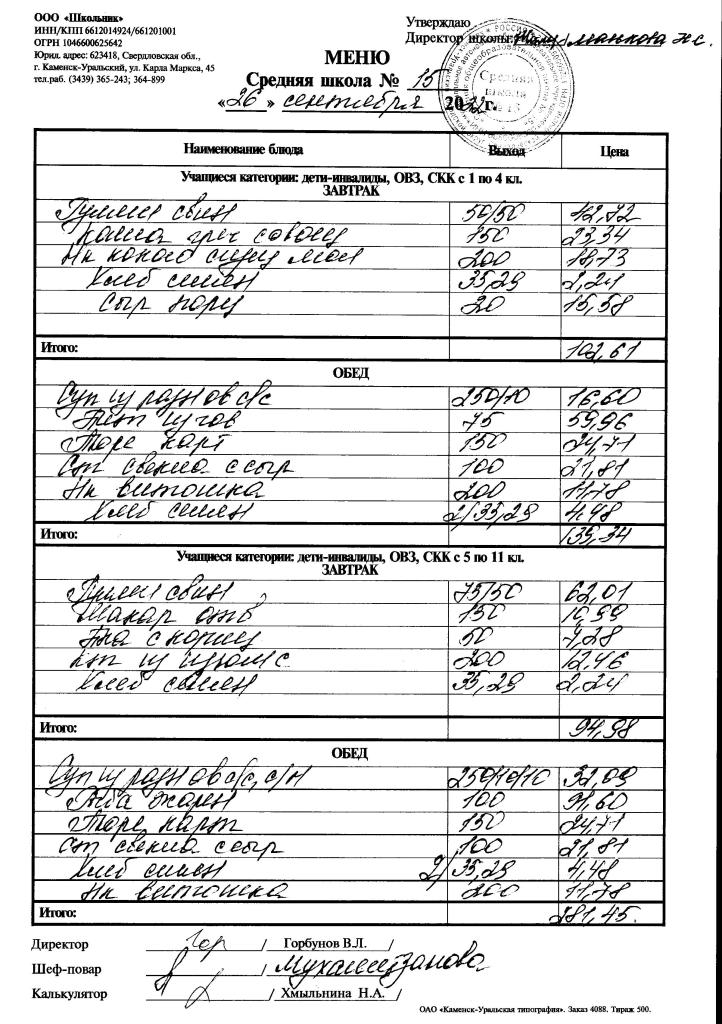 ООО «Школьник»
ИНН/КПП 6612014924/661201001
ОГРН 1046600625642
Юрид. адрес: 623418, Свердловская обл.,
г. Каменск-Уральский, ул. Карла Маркса, 45
тел.раб. (3439) 365-243; 364-899
Утверждаю
Директор школы:
МЕНЮ
Средняя школа № 15
«26» сентября 2022г.
Средняя
школа
Наименование блюда Выход Цена
Учащиеся категории: дети-инвалиды, ОВЗ, СКК с 1 по 4 кл.
ЗАВТРАК
Гуляш свин 50/50 42,72
Каша греч с овощ 150 23,34
Нк какао сгущ мол 200 18,73
Хлеб смеш 35,29 2,24
Сыр порц 20 15,58
Итого: 102,61
ОБЕД
Суп из разн ов с/с 250/10 16,60
75 59,96
Пюре карт 150 24,71
Сал свекла с сыр 100 21,81
Нк витошка 200 11,78
Хлеб смеш 2/35,29 4,48
Итого: 139,34
Учащиеся категории: дети-инвалиды, ОВЗ, СКК с 5 по 11 кл.
ЗАВТРАК
Гуляш свин 75/50 62,01
Макар отв 150 10,99
с кориц 50 7,28
из изюм с 200 12,46
Хлеб смеш 35,29 2,24
Итого: 94,98
ОБЕД
Суп из разн ов с/с, с/м 250/10/10 32,09
Рыба жарен 100
Пюре карт 150 24,71
Сал свекла с сыр 100 21,81
Хлеб смеш 2/35,29 4,48
Нк витошка 200 11,78
Итого: 181,45.
Директор / Горбунов В.Л. /
Шеф-повар / Мухаметзанова
Калькулятор / Хмыльнина Н.А. /
ОАО «Каменск-Уральская типография». Заказ 4088. Тираж 500.